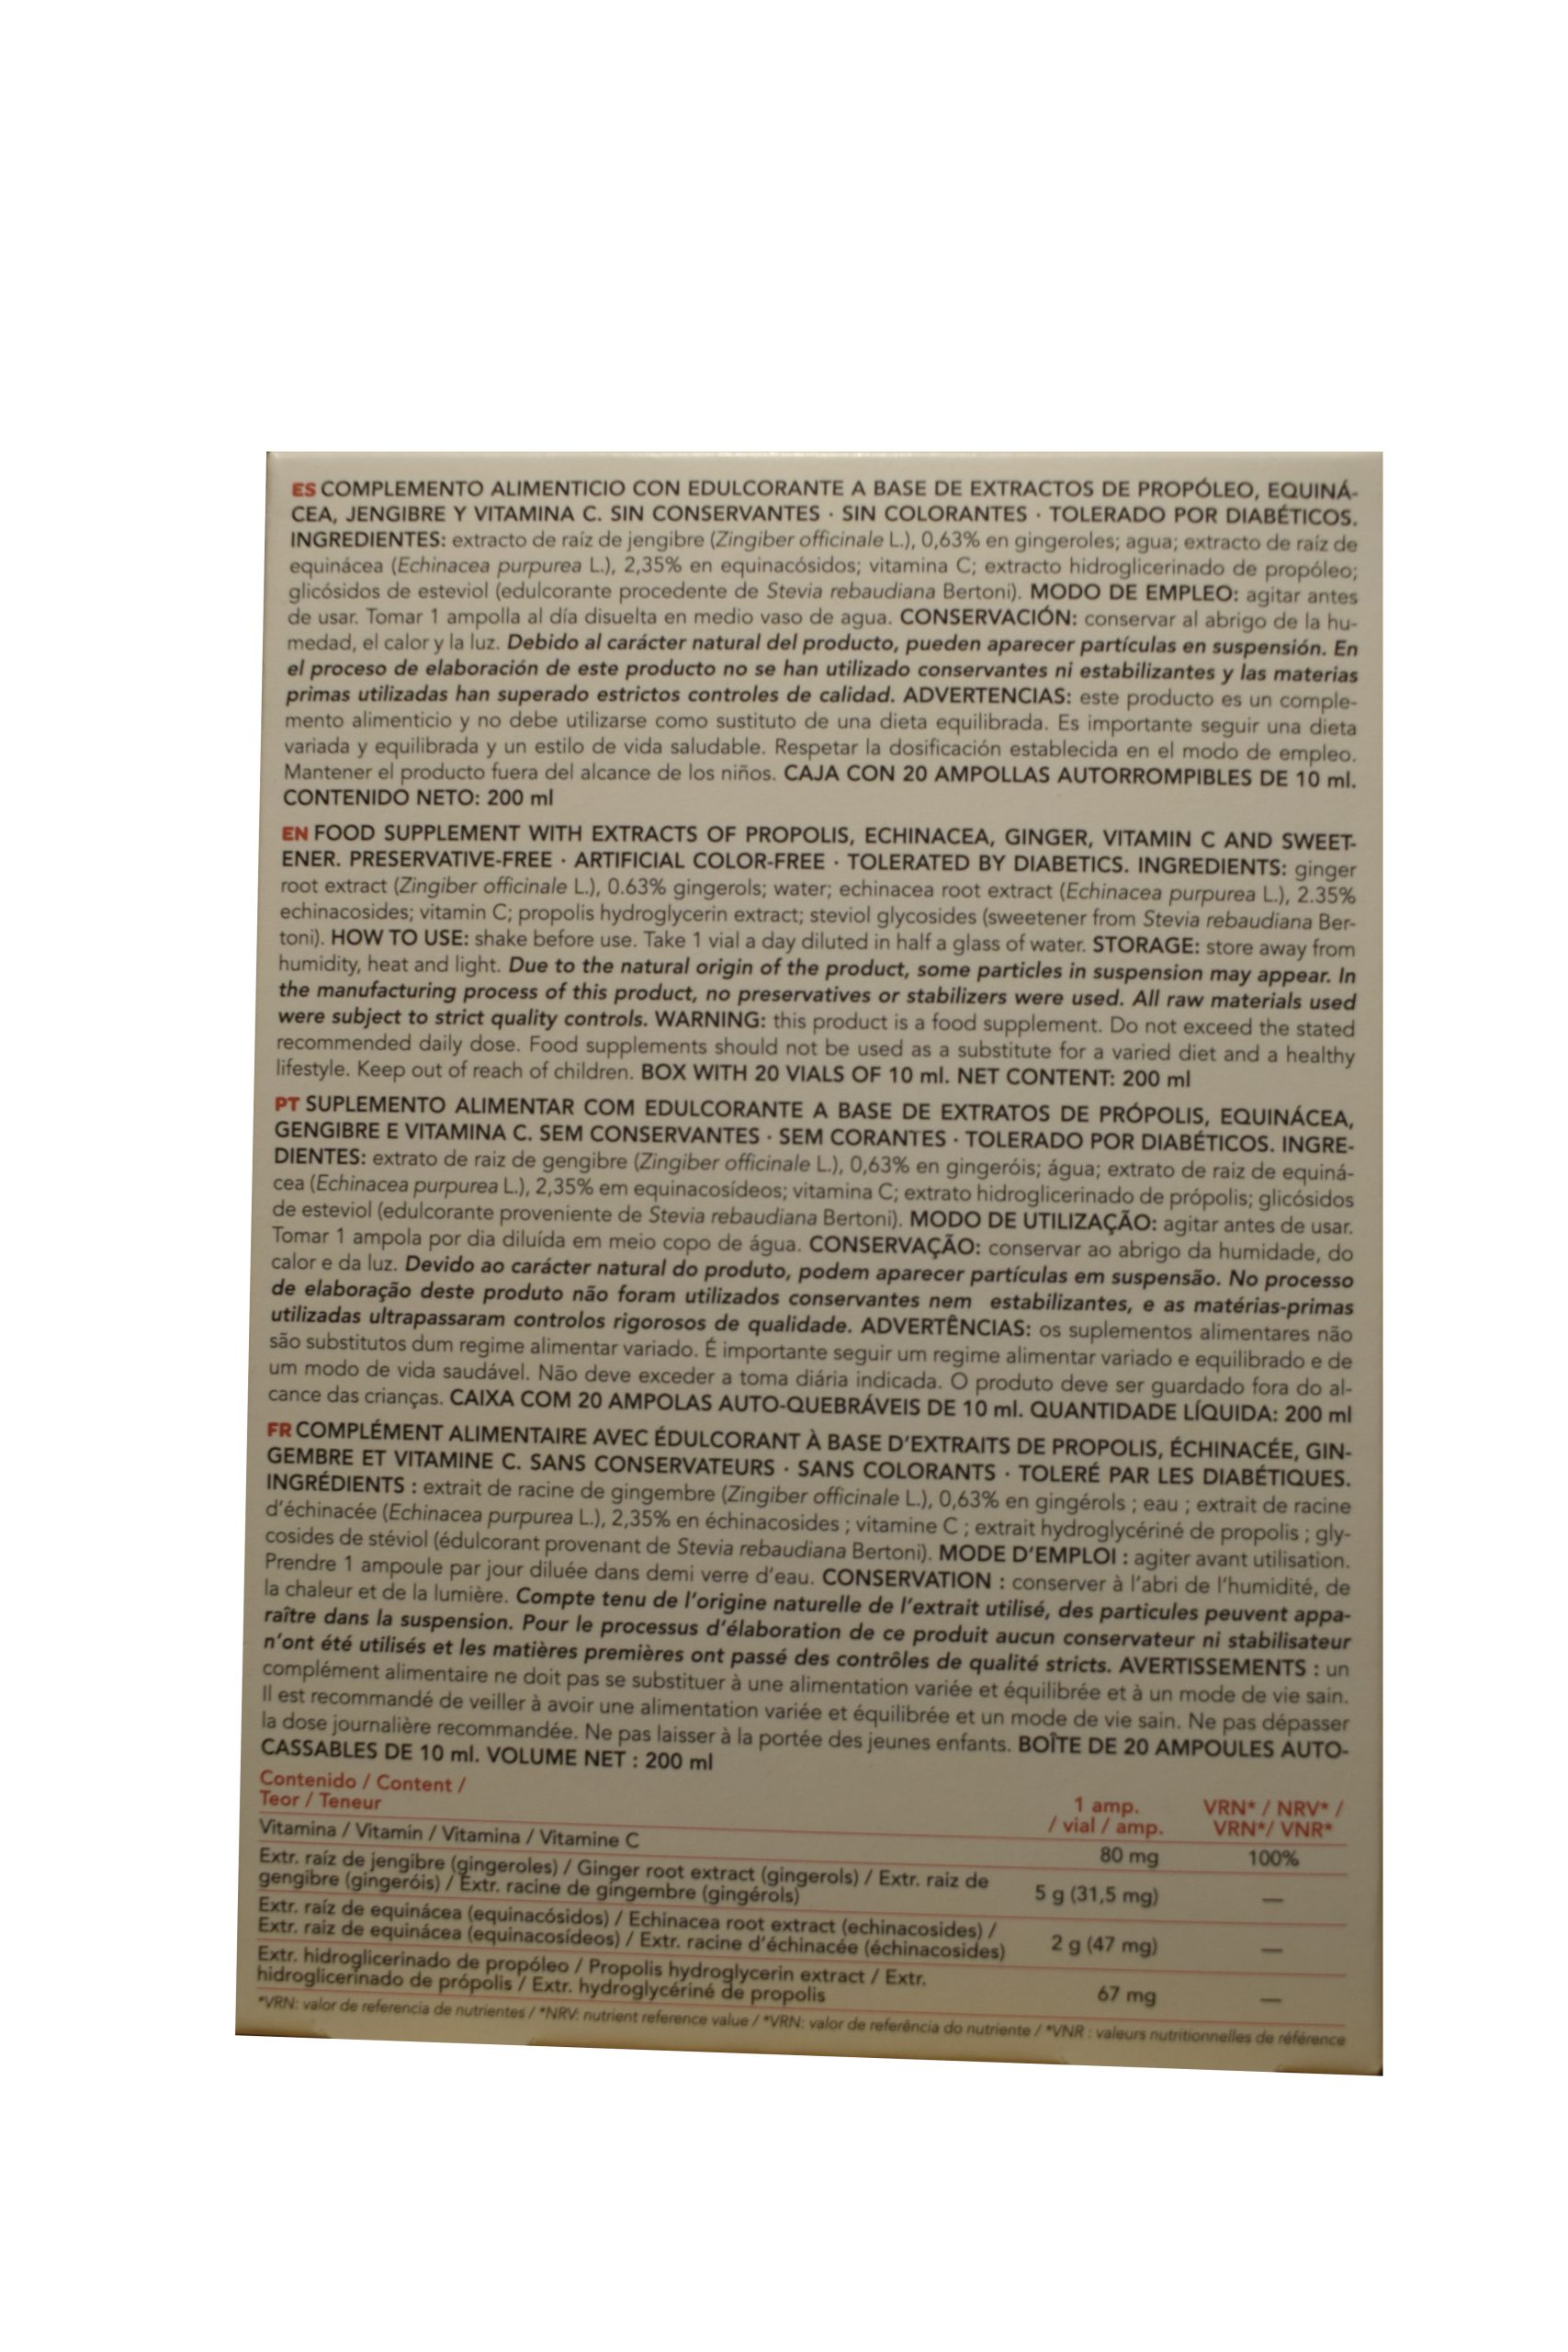 ES COMPLEMENTO ALIMENTICIO CON EDULCORANTE A BASE DE EXTRACTOS DE PROPÓLEO, EQUINÁ-
CEA, JENGIBRE Y VITAMINA C. SIN CONSERVANTES · SIN COLORANTES · TOLERADO POR DIABÉTICOS.
INGREDIENTES: extracto de raíz de jengibre (Zingiber officinale L.), 0,63% en gingeroles; agua; extracto de raíz de
equinácea (Echinacea purpurea L.), 2,35% en equinacósidos; vitamina C; extracto hidroglicerinado de propóleo;
glicósidos de esteviol (edulcorante procedente de Stevia rebaudiana Bertoni). MODO DE EMPLEO: agitar antes
de usar. Tomar 1 ampolla al día disuelta en medio vaso de agua. CONSERVACIÓN: conservar al abrigo de la hu-
medad, el calor y la luz. Debido al carácter natural del producto, pueden aparecer partículas en suspensión. En
el proceso de elaboración de este producto no se han utilizado conservantes ni estabilizantes y las materias
primas utilizadas han superado estrictos controles de calidad. ADVERTENCIAS: este producto es un comple-
mento alimenticio y no debe utilizarse como sustituto de una dieta equilibrada. Es importante seguir una dieta
variada y equilibrada y un estilo de vida saludable. Respetar la dosificación establecida en el modo de empleo.
Mantener el producto fuera del alcance de los niños. CAJA CON 20 AMPOLLAS AUTORROMPIBLES DE 10 ml.
CONTENIDO NETO: 200 ml
EN FOOD SUPPLEMENT WITH EXTRACTS OF PROPOLIS, ECHINACEA, GINGER, VITAMIN C AND SWEET-
ENER. PRESERVATIVE-FREE · ARTIFICIAL COLOR-FREE · TOLERATED BY DIABETICS. INGREDIENTS: ginger
root extract (Zingiber officinale L.), 0.63% gingerols; water; echinacea root extract (Echinacea purpurea L.), 2.35%
echinacosides; vitamin C; propolis hydroglycerin extract; steviol glycosides (sweetener from Stevia rebaudiana Ber-
toni). HOW TO USE: shake before use. Take 1 vial a day diluted in half a glass of water. STORAGE: store away from
humidity, heat and light. Due to the natural origin of the product, some particles in suspension may appear. In
the manufacturing process of this product, no preservatives or stabilizers were used. All raw materials used
were subject to strict quality controls. WARNING: this product is a food supplement. Do not exceed the stated
recommended daily dose. Food supplements should not be used as a substitute for a varied diet and a healthy
lifestyle. Keep out of reach of children. BOX WITH 20 VIALS OF 10 ml. NET CONTENT: 200 ml
PT SUPLEMENTO ALIMENTAR COM EDULCORANTE A BASE DE EXTRATOS DE PRÓPOLIS, EQUINÁCEA,
GENGIBRE E VITAMINA C. SEM CONSERVANTES · SEM CORANTES · TOLERADO POR DIABÉTICOS. INGRE-
DIENTES: extrato de raiz de gengibre (Zingiber officinale L.), 0,63% en gingeróis; água; extrato de raiz de equiná-
cea (Echinacea purpurea L.), 2,35% em equinacosídeos; vitamina C; extrato hidroglicerinado de própolis; glicósidos
de esteviol (edulcorante proveniente de Stevia rebaudiana Bertoni). MODO DE UTILIZAÇÃO: agitar antes de usar.
Tomar 1 ampola por dia diluída em meio copo de água. CONSERVAÇÃO: conservar ao abrigo da humidade, do
calor e da luz. Devido ao carácter natural do produto, podem aparecer partículas em suspensão. No processo
de elaboração deste produto não foram utilizados conservantes nem estabilizantes, e as matérias-primas
utilizadas ultrapassaram controlos rigorosos de qualidade. ADVERTÊNCIAS: os suplementos alimentares não
são substitutos dum regime alimentar variado. É importante seguir um regime alimentar variado e equilibrado e de
um modo de vida saudável. Não deve exceder a toma diária indicada. O produto deve ser guardado fora do al-
cance das crianças. CAIXA COM 20 AMPOLAS AUTO-QUEBRÁVEIS DE 10 ml. QUANTIDADE LÍQUIDA: 200 ml
FR COMPLÉMENT ALIMENTAIRE AVEC ÉDULCORANT À BASE D'EXTRAITS DE PROPOLIS, ÉCHINACÉE, GIN-
GEMBRE ET VITAMINE C. SANS CONSERVATEURS · SANS COLORANTS · TOLERÉ PAR LES DIABÉTIQUES.
INGRÉDIENTS : extrait de racine de gingembre (Zingiber officinale L.), 0,63% en gingérols ; eau ; extrait de racine
d'échinacée (Echinacea purpurea L.), 2,35% en échinacosides ; vitamine C ; extrait hydroglycériné de propolis ; gly-
cosides de stéviol (édulcorant provenant de Stevia rebaudiana Bertoni). MODE D'EMPLOI : agiter avant utilisation.
Prendre 1 ampoule par jour diluée dans demi verre d'eau. CONSERVATION : conserver à l'abri de l'humidité, de
la chaleur et de la lumière. Compte tenu de l'origine naturelle de l'extrait utilisé, des particules peuvent appa-
raître dans la suspension. Pour le processus d'élaboration de ce produit aucun conservateur ni stabilisateur
n'ont été utilisés et les matières premières ont passé des contrôles de qualité stricts. AVERTISSEMENTS : un
complément alimentaire ne doit pas se substituer à une alimentation variée et équilibrée et à un mode de vie sain.
Il est recommandé de veiller à avoir une alimentation variée et équilibrée et un mode de vie sain. Ne pas dépasser
la dose journalière recommandée. Ne pas laisser à la portée des jeunes enfants. BOÎTE DE 20 AMPOULES AUTO-
CASSABLES DE 10 ml. VOLUME NET : 200 ml
Contenido / Content /
Teor / Teneur
1 amp.
/ vial / amp.
VRN* / NRV* /
VRN*/ VNR*
Vitamina / Vitamin / Vitamina / Vitamine C 80 mg 100%
Extr. raíz de jengibre (gingeroles) / Ginger root extract (gingerols) / Extr. raiz de
gengibre (gingeróis) / Extr. racine de gingembre (gingérols) 5 g (31,5 mg) —
Extr. raíz de equinácea (equinacósidos) / Echinacea root extract (echinacosides) /
Extr. raiz de equinácea (equinacosídeos) / Extr. racine d'échinacée (échinacosides) 2 g (47 mg) —
Extr. hidroglicerinado de propóleo / Propolis hydroglycerin extract / Extr.
hidroglicerinado de própolis / Extr. hydroglycériné de propolis 67 mg —
*VRN: valor de referencia de nutrientes / *NRV: nutrient reference value / *VRN: valor de referência do nutriente / *VNR : valeurs nutritionnelles de référence